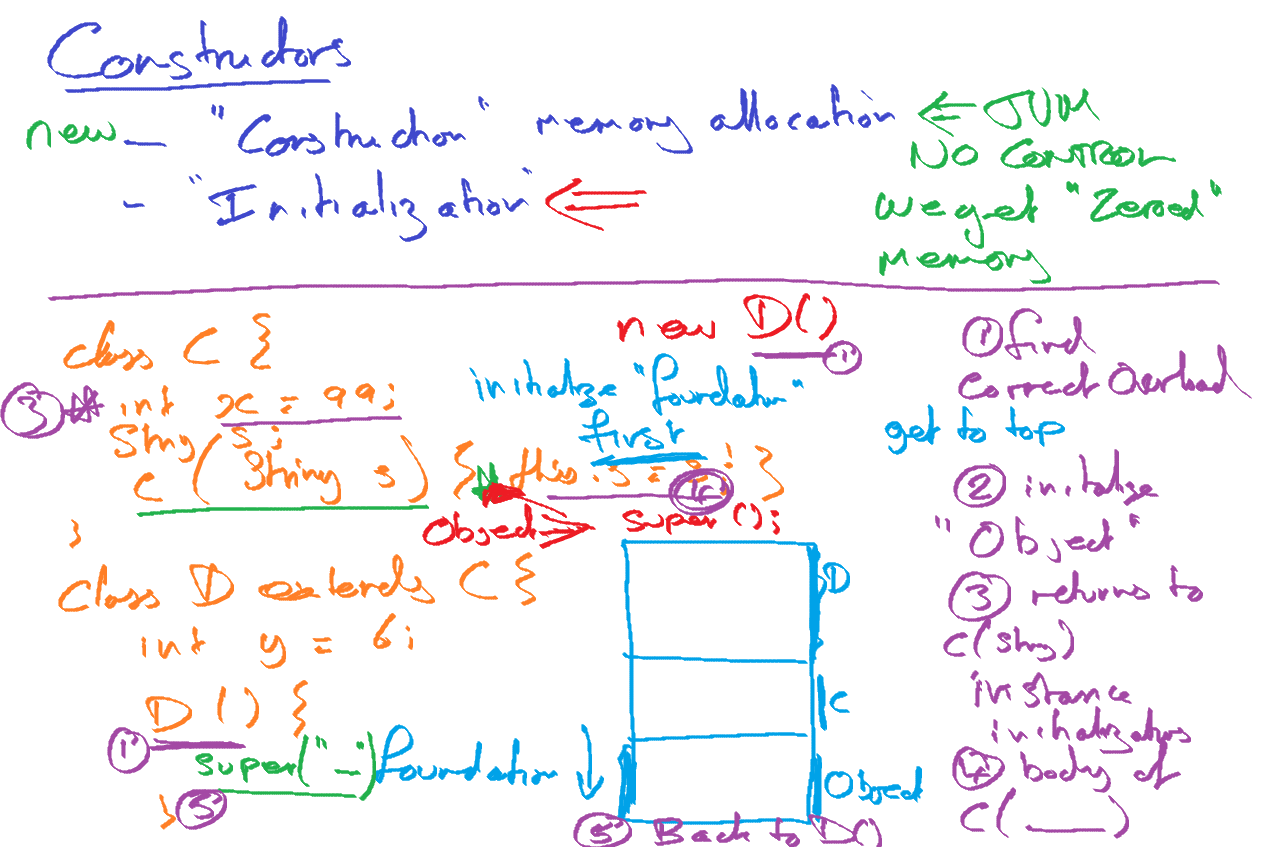 Constructors
new - "Construction" memory allocation ⇐ JVM
NO CONTROL
- "Initialization" ⇐
we get "Zeroed"
memory
class C {
③ int x = 99;
String s;
C ( String s ) { this.s = s; } ④
Object → super ();
}
class D extends C {
int y = 6;
D () {
①
super("–") foundation ↓
} ⑤
new D()
①
initialize "foundation"
first
D
C
Object
⑤ Back to D()
① find
correct Overload
get to top
② initialize
"Object"
③ returns to
C(String)
instance
initializators
④ body of
C(____)